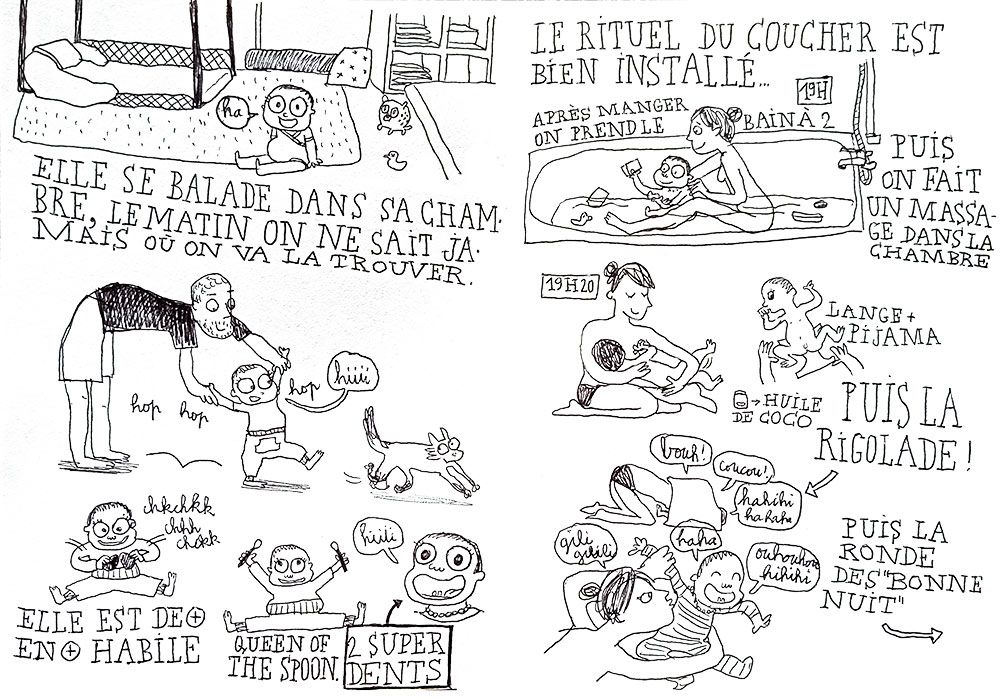 ha
ELLE SE BALADE DANS SA CHAM-
BRE, LE MATIN ON NE SAIT JA-
MAIS OÙ ON VA LA TROUVER.
hop hop hop hiiii
chkchkk
chhh
chokk
ELLE EST DE ⊕
EN ⊕ HABILE
QUEEN OF
THE SPOON.
hiiii
2 SUPER
DENTS
LE RITUEL DU COUCHER EST
BIEN INSTALLÉ...
19H
APRÈS MANGER
ON PREND LE BAIN À 2
PUIS
ON FAIT
UN MASSA-
GE DANS LA
CHAMBRE
19H20
LANGE +
PIJAMA
→ HUILE
DE COCO
PUIS LA
RIGOLADE !
bouh!
coucou!
hahihi
hahaha
PUIS LA
RONDE
DES "BONNE
NUIT"
gili
gilili
haha
ouhouhou
hihihi